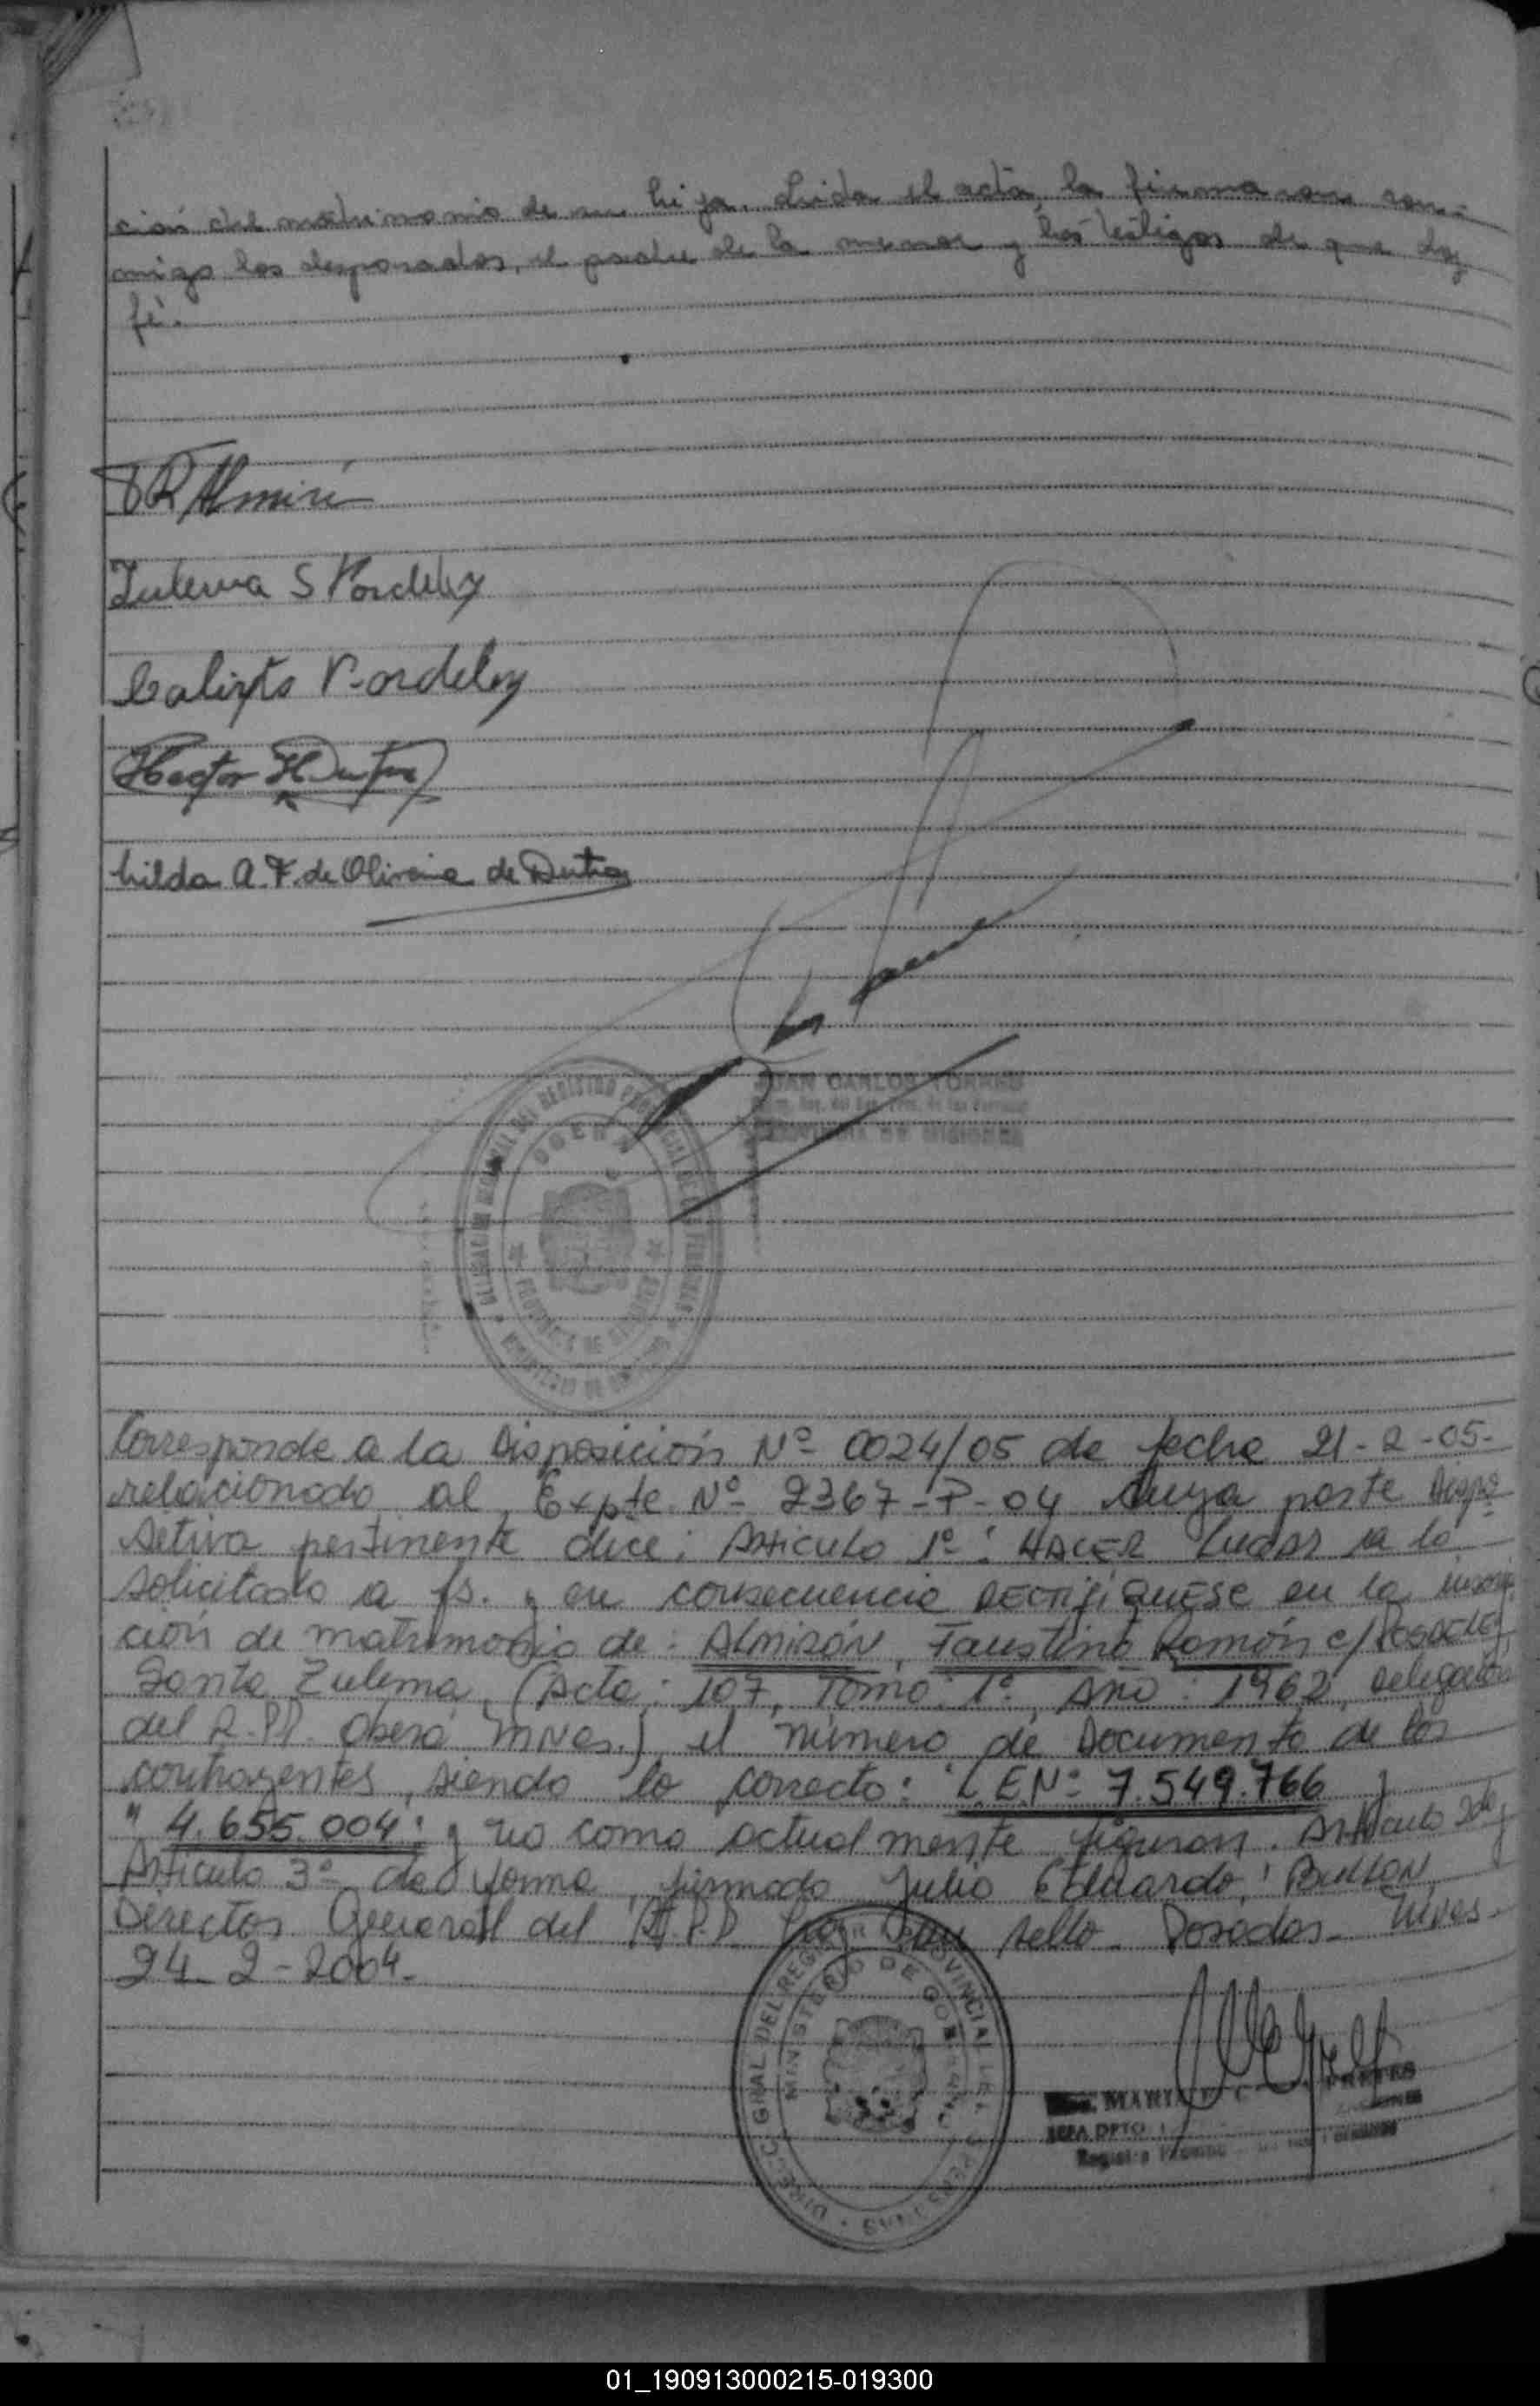 ción del matrimonio de su hija. Leida el acta, la firmaron con-
migo los desposados, el padre de la menor y los testigos de que doy
fé.
Zulema S
Calixto
Hector H Dutra
hilda A. F. de Oliveira de Dutra
JUAN CARLOS TORRES
PROVINCIA DE MISIONES
DELEGACION DEL REGISTRO PROVINCIAL DE LAS PERSONAS
OBERA
PROVINCIA DE MISIONES
Corresponde a la Disposición Nº 0024/05 de fecha 21-2-05-
relacionado al Expte. Nº 2367-P-04 cuya parte Dispo
sitiva pertinente dice: Articulo 1º: HACER Lugar a lo
solicitado a fs. y en consecuencia RECTIFIQUESE en la inscrip
ción de matrimonio de: Almirón, Faustino Ramón c/
Santa Zulema, (Acta: 107, Tomo: 1º, Año: 1962, Delegación
del R.PP. Oberá Mnes.) el número de Documento de los
contrayentes, siendo lo correcto: "L.E.Nº 7.549.766 y
" 4.655.004" y no como actualmente figuran. Articulo 2do y
Articulo 3º de forma, firmado Julio Eduardo
Director General del R.P.P. hay un sello. Posadas. Mnes.
24-2-2004.
DIREC. GRAL DEL REGISTRO PROVINCIAL DE LAS PERSONAS
MINISTERIO DE GOBIERNO
JEFA DPTO
01_190913000215-019300